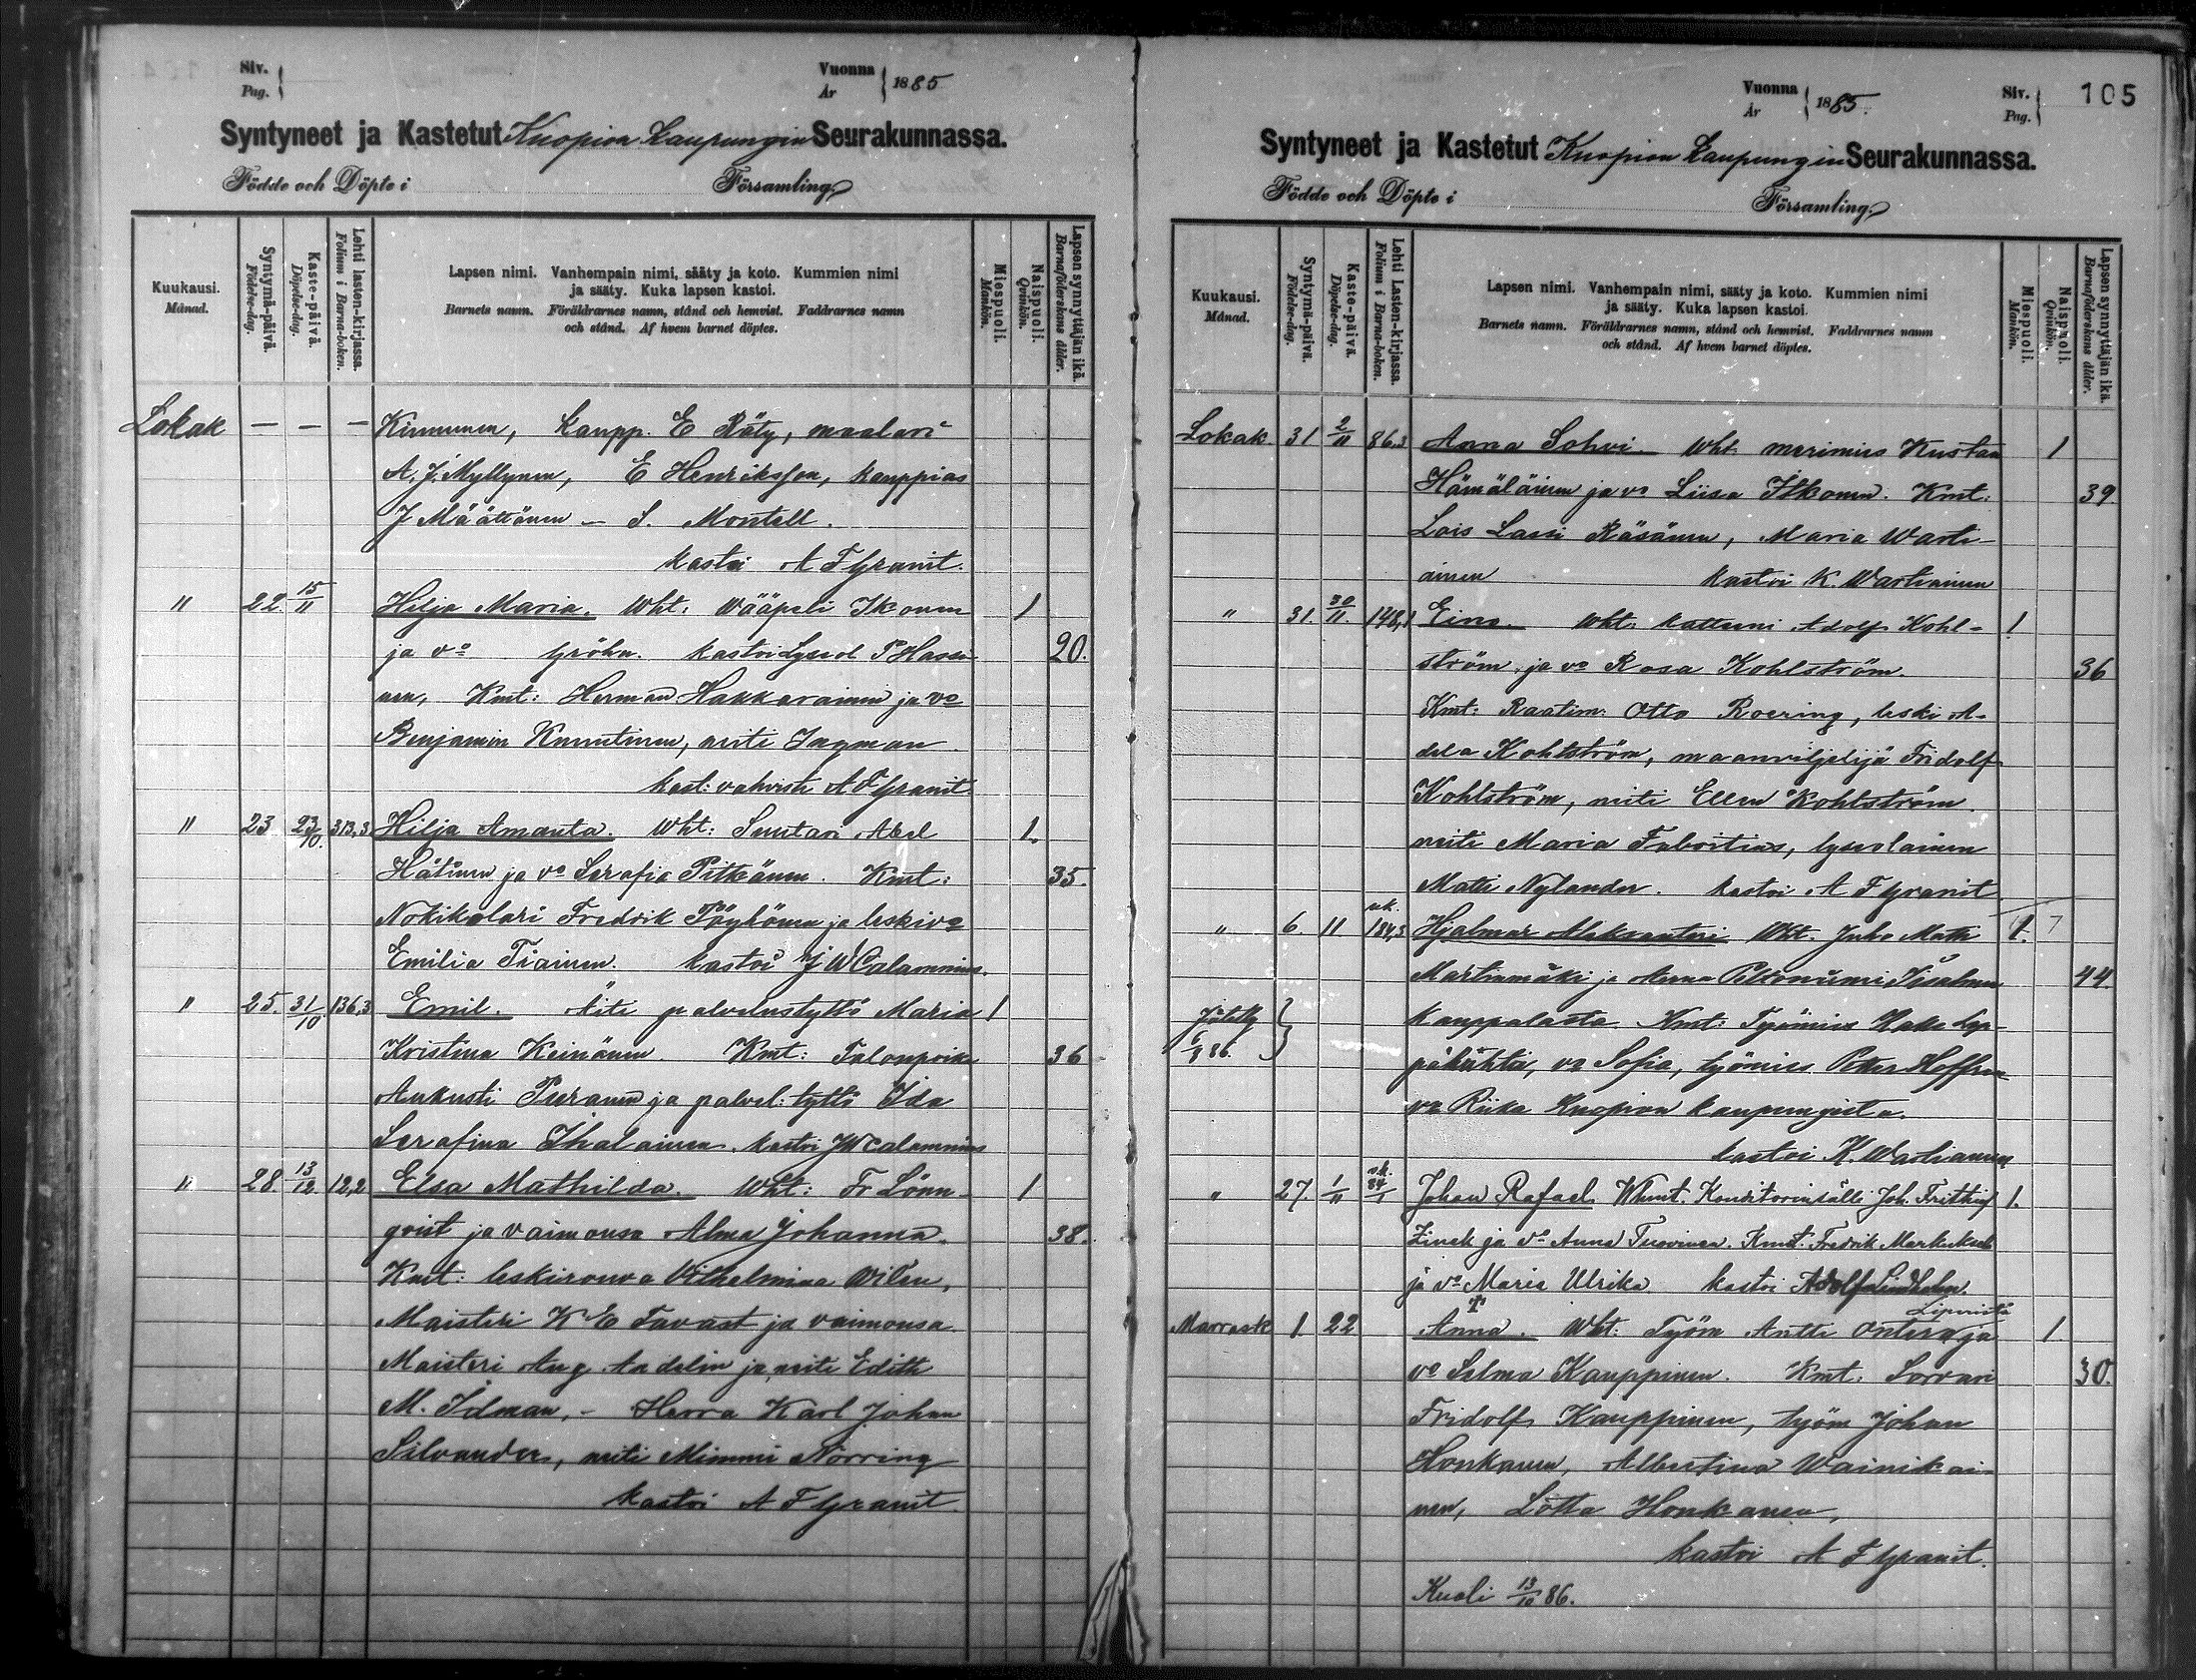 Siv.
Pag.
Vuonna
År
1885
Syntyneet ja Kastetut Kuopion Kaupungin Seurakunnassa.
Födde och Döpte i Församling.
Kuukausi.
Månad.
Syntymä-päivä.
Födelse-dag.
Kaste-päivä.
Döpelse-dag.
Lehti lasten-kirjassa.
Folium i Barna-boken.
Lapsen nimi. Vanhempain nimi, sääty ja koto. Kummien nimi
ja sääty. Kuka lapsen kastoi.
Barnets namn. Föräldrarnes namn, stånd och hemvist. Faddrarnes namn
och stånd. Af hvem barnet döptes.
Miespuoli.
Mankön.
Naispuoli.
Qvinkön.
Lapsen synnyttäjän ikä.
Barnaföderskans ålder.
Lokak — — — Kinnunen, Kaupp. E Räty, maalari
A. J. Myllynen, E Henriksson, kauppias
J Määttänen – S. Montell.
kastoi A F Granit.
" 22. 15/11 Hilja Maria. Wht: Wääpeli Ikonen 1
ja vo Gröhn. kastoi Lyseol P Hassi- 20.
nen, Kmt: Herman Hakkarainen ja vo
Benjamin Knuutinen, neiti Ingman
kast: vahvisti A F Granit.
" 23 23/10. 313,3 Hilja Amanta. Wht: Suutari Abel 1.
Hätinen ja vo Serafia Pitkänen. Kmt: 35.
Nokikolari Fredrik Pöyhönen ja leskivo
Emilia Tiainen. kastoi J W Calamnius.
" 25. 31/10 136,3 Emil. Äiti palvelustyttö Maria 1
Kristina Keinänen. Kmt: Talonpoika 36
Aukusti Pieranen ja palvel: tyttö Ida
Serafina Ihalainen. kastoi J W Calamnius
" 28. 13/12 12,2 Elsa Mathilda. Wht: Fr Lönn- 1
qvist ja vaimonsa Alma Johanna. 38.
Kmt: leskirouva Vilhelmina Wilén,
Maisteri K E Tavast ja vaimonsa
Maisteri Aug. Andelin ja neiti Edith
M. Idman, – Herra Karl Johan
Silvander, neiti Mimmi Norring
kastoi A F Granit.
Vuonna
År
1885.
Siv.
Pag.
105
Syntyneet ja Kastetut Kuopion Kaupungin Seurakunnassa.
Födde och Döpte i Församling.
Kuukausi.
Månad.
Syntymä-päivä.
Födelse-dag.
Kaste-päivä.
Döpelse-dag.
Lehti Lasten-kirjassa.
Folium i Barna-boken.
Lapsen nimi. Vanhempain nimi, sääty ja koto. Kummien nimi
ja sääty. Kuka lapsen kastoi.
Barnets namn. Föräldrarnes namn, stånd och hemvist. Faddrarnes namn
och stånd. Af hvem barnet döptes.
Miespuoli.
Mankön.
Naispuoli.
Qvinkön.
Lapsen synnyttäjän ikä.
Barnaföderskans ålder.
Lokak 31 2/11 86.3 Anna Sohvi. Wht. merimies Kustaa 1
Hämäläinen ja vo Liisa Itkonen. Kmt: 39
Lois Lassi Räsänen, Maria Warti-
ainen kastoi K. Wartiainen
" 31. 30/11. 148,1 Eino. Wht: katteini Adolf Kohl- 1
ström, ja vo Rosa Kohlström. 36
Kmt: Raatim: Otto Roering, leski A-
dela Kohlström, maanviljelijä Fridolf
Kohlström, neiti Ellen Kohlström.
neiti Maria Fabritius, lyseolainen
Matti Nylander. kastoi A F Granit
" 6. 11 uk. 184,3 Hjalmar Aleksanteri Wht. Juho Matti 1.
Martinmäki ja Anna Peltoniemi Iisalmen 44.
kauppalasta. Kmt: Työmies
vo Sofia, työmies Petter Hoffren
vo Riika Kuopion kaupungista.
kastoi K. Wartiainen
" 27. 1/11 uk. Johan Rafael. Whmt. Konditorinsälli Joh. Frithiof 1.
Zinck ja vo Anna Tuovinen. Kmt. Fredrik Markuksela
ja vo Maria Ulrika kastoi Adolf Lindholm.
Marrask 1. 22 Anna. Wht: Työm Antti Ontero ja 1.
vo Selma Kauppinen. Kmt: Sorvari 30.
Fridolf Kauppinen, työm Johan
Honkanen, Albertina Wainikai-
nen, Lotta Honkanen,
kastoi A F Granit.
Kuoli 13/10 86.